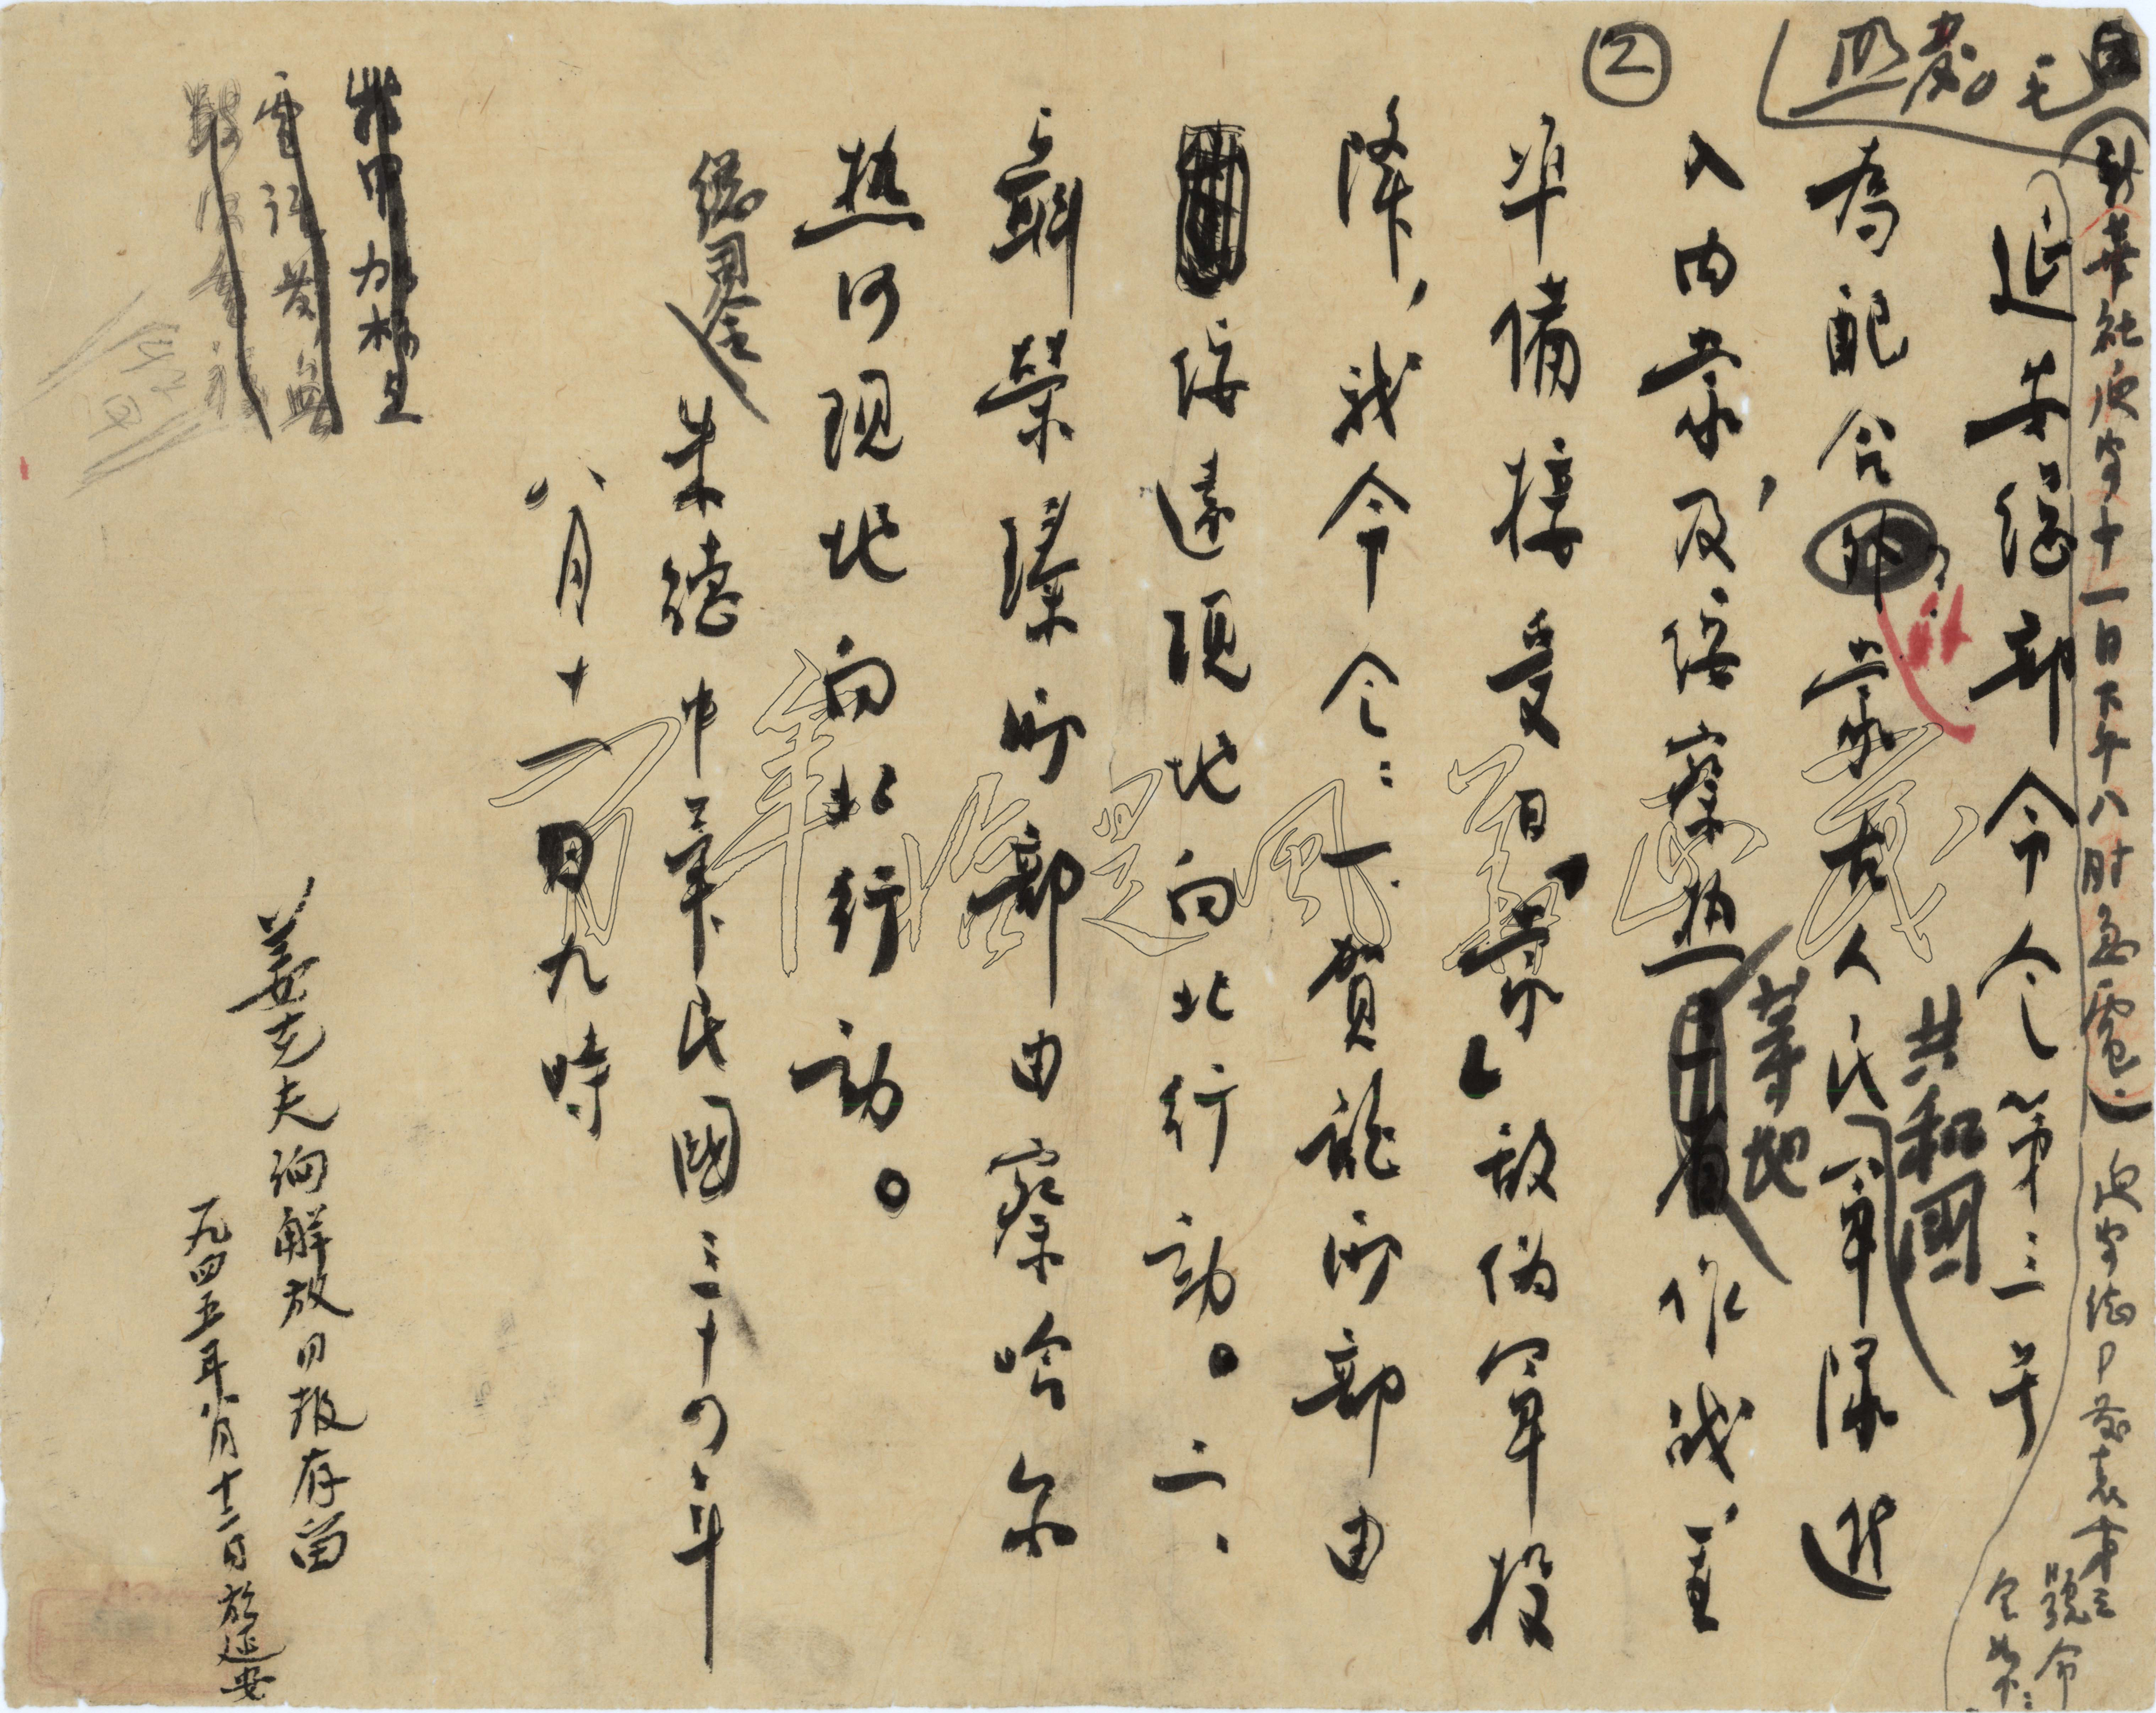 ②
照發。毛
（新華社延安十一日下午八時急電：）延安總部發表第三
號命
令如下：
延安總部命令第三号
為配合外蒙古人民共和國軍隊進
入内蒙及绥察热等地作战，並
準備接受日「蒙」敌伪军投
降，我命令：一、贺龍所部由
绥遠現地向北行动。二、
聶榮臻所部由察哈尔
热河現地向北行动。
總司令
朱德 中華民國三十四年
八月十一日九時
姜克夫洵解放日报存留
一九四五年八月十二日於延安